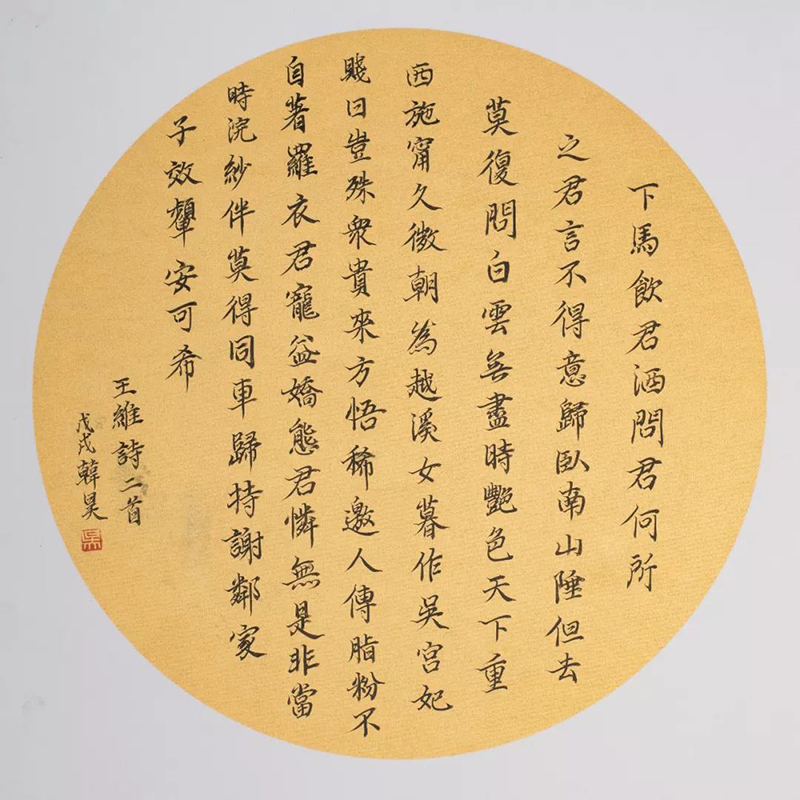 下馬飲君酒問君何所
之君言不得意歸臥南山陲但去
莫復問白雲無盡時艷色天下重
西施甯久微朝為越溪女暮作吳宮妃
賤日豈殊衆貴來方悟稀邀人傳脂粉不
自著羅衣君寵益嬌態君憐無是非當
時浣紗伴莫得同車歸持謝鄰家
子效顰安可希
王維詩二首
戊戌韓昊